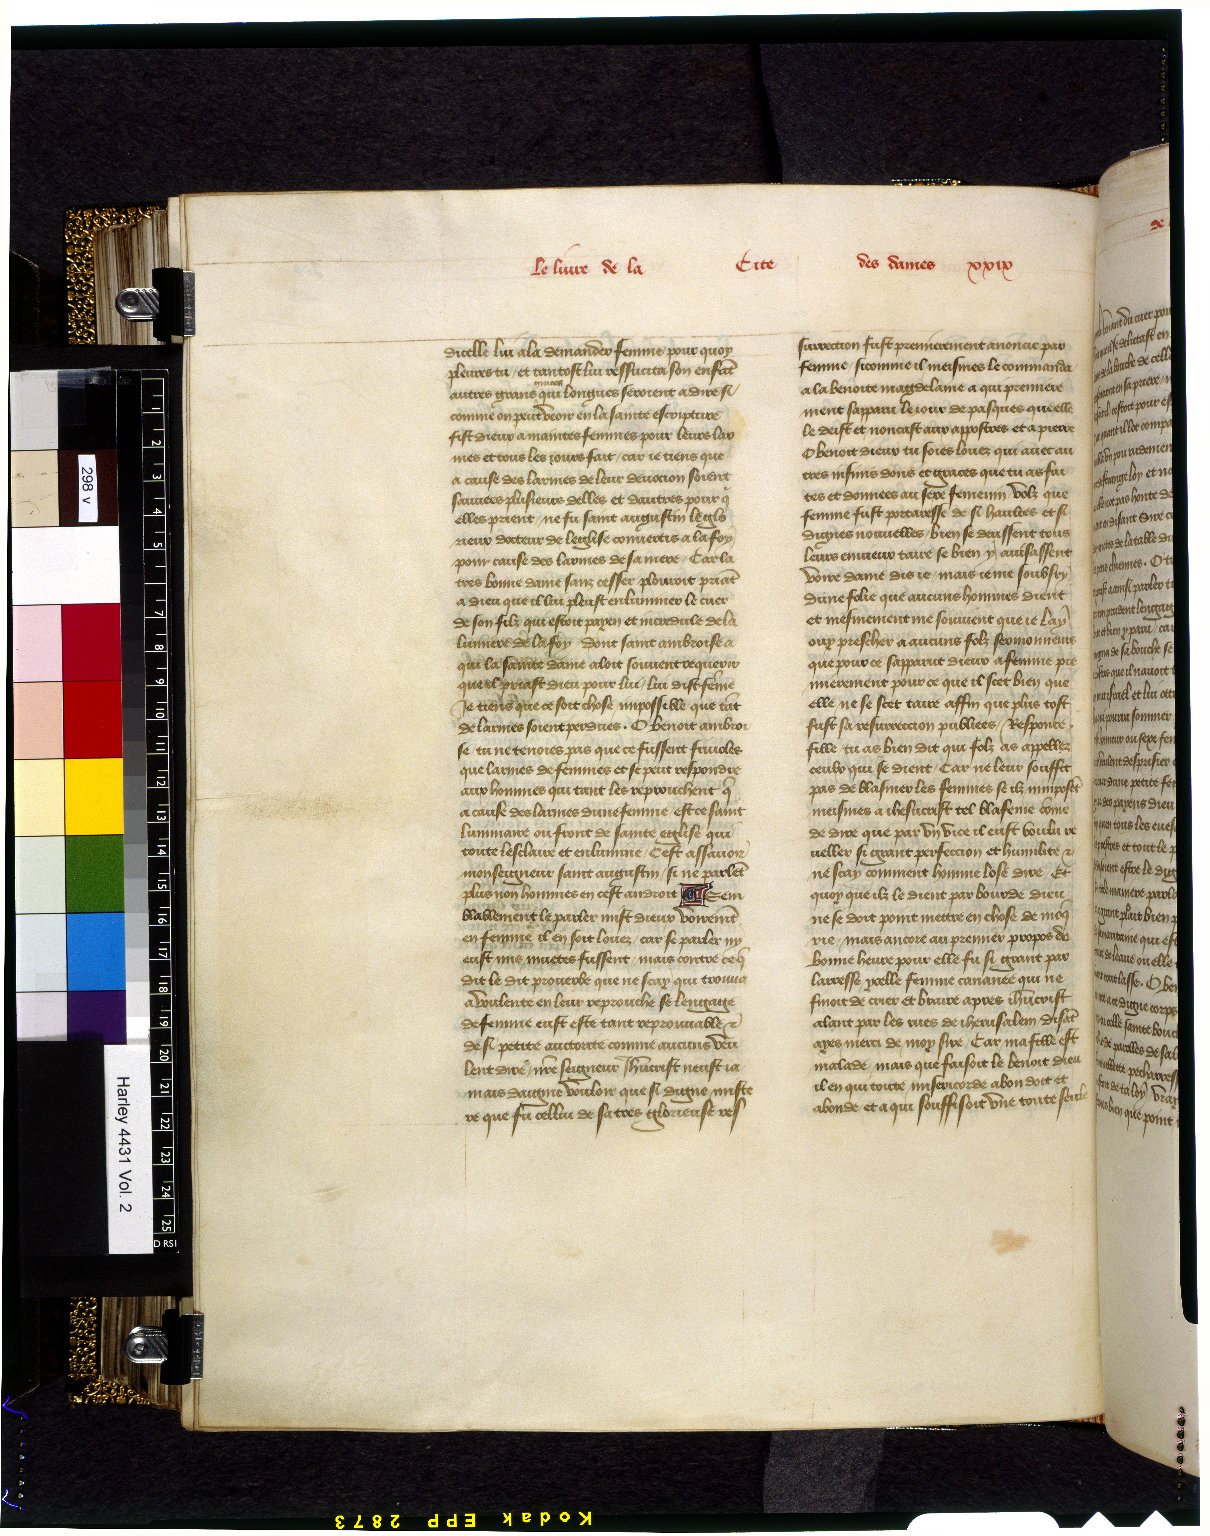 le liure de la Cite des dames xxix
dicelle lui a la demander femme pour quoy
pleures tu / et tantost lui ressucita son enfãt
autres grans graces qui longues seroient a dire si
comme on peut veoir en la sainte escripture
fist dieux a maintes femmes pour leurs lar
mes et tous les iours fait / car ie tiens que
a cause des larmes de leur deuocion soient
sauuees plusieurs delles et dautres pour q̃
elles prient / ne fu saint augustin le glo
rieux docteur de leglise conuertis a la foy
pour cause des larmes de sa mere / Car la
tres bonne dame sanz cesser plouroit priãt
a dieu que il lui pleust enluminer le cuer
de son filz qui estoit payen et incredule de la
lumiere de la foy / dont saint ambroise a
qui la sainte dame aloit souuent requerir
que il priast dieu pour lui / lui dist fẽme
Je tiens que ce soit chose impossible que tãt
de larmes soient perdues . O benoit ambroi
se tu ne tenoies pas que ce fussent friuoles
que larmes de femmes et se peut respondre
aux hommes qui tant les reprouchent q̃
a cause des larmes dune femme est ce saint
luminaire ou front de sainte eglise qui
toute lesclaire et enlumine / Cest assauoir
monseigneur saint augustin / si ne parlẽt
plus non hommes en cest androit Sem
blablement le parler mist dieux voiremẽt
en femme il en soit louez / car se parler ny
eust mis muetes fussent / mais contre ce q̃
dit le dit prouerbe que ne scay qui trouua
a voulente en leur reprouche se lengage
de femme eust este tant reprouuable et
de si petite auctorite comme aucuns veu
lent dire / nr̃e seigneur ihũcrist neust ia
mais daigne vouloir que si digne miste
re que fu cellui de sa tres glorieuse res
surrection fust premierement anoncie par
femme / sicomme il meismes le commanda
a la benoite magdelaine a qui premiere
ment sapparu le iour de pasques que elle
le deist et noncast aux appostres et a pierre
O benoit dieux tu soies louez qui auec au
tres infinis dons et graces que tu as fai
tes et donnees au sexe femenin voulz que
femme fust porteresse de si haultes et si
dignes nouuelles / bien se deussent tous
leurs enuieux taire se bien y auisassent
voire dame dis ie / mais ie me soubsry
dune folie que aucuns hommes dient
et mesmement me souuient que ie lay
ouy prescher a aucuns folz sermonneurs
que pour ce sapparut dieux a femme pre
mierement pour ce que il scet bien que
elle ne se scet taire affin que plus tost
fust sa resurreccion publiees / Responce .
fille tu as bien dit qui folz as appellez
ceulx qui se dient / Car ne leur souffit
pas de blasmer les femmes se ilz nimposẽt
meismes a ihesucrist tel blaseme cõme
de dire que par vn vice il eust voulu re
ueller si grant perfeccion et humilite et
ne scay comment homme lose dire / Et
quoy que ilz le dient par bourde dieu
ne se doit point mettre en chose de moq̃
rie / mais ancore au premier propos de
bonne heure pour elle fu si grant par
larresse ycelle femme cananee qui ne
finoit de crier et braire apres ihũcrist
alant par les rues de iherusalem disãt
ayes merci de moy sire / Car ma fille est
malade / mais que faisoit le benoit dieu
il en qui toute misericorde abondoit et
abonde et a qui souffisoit vne toute seule
298 v
Harley 4431 Vol. 2
Kodak EPP 2873